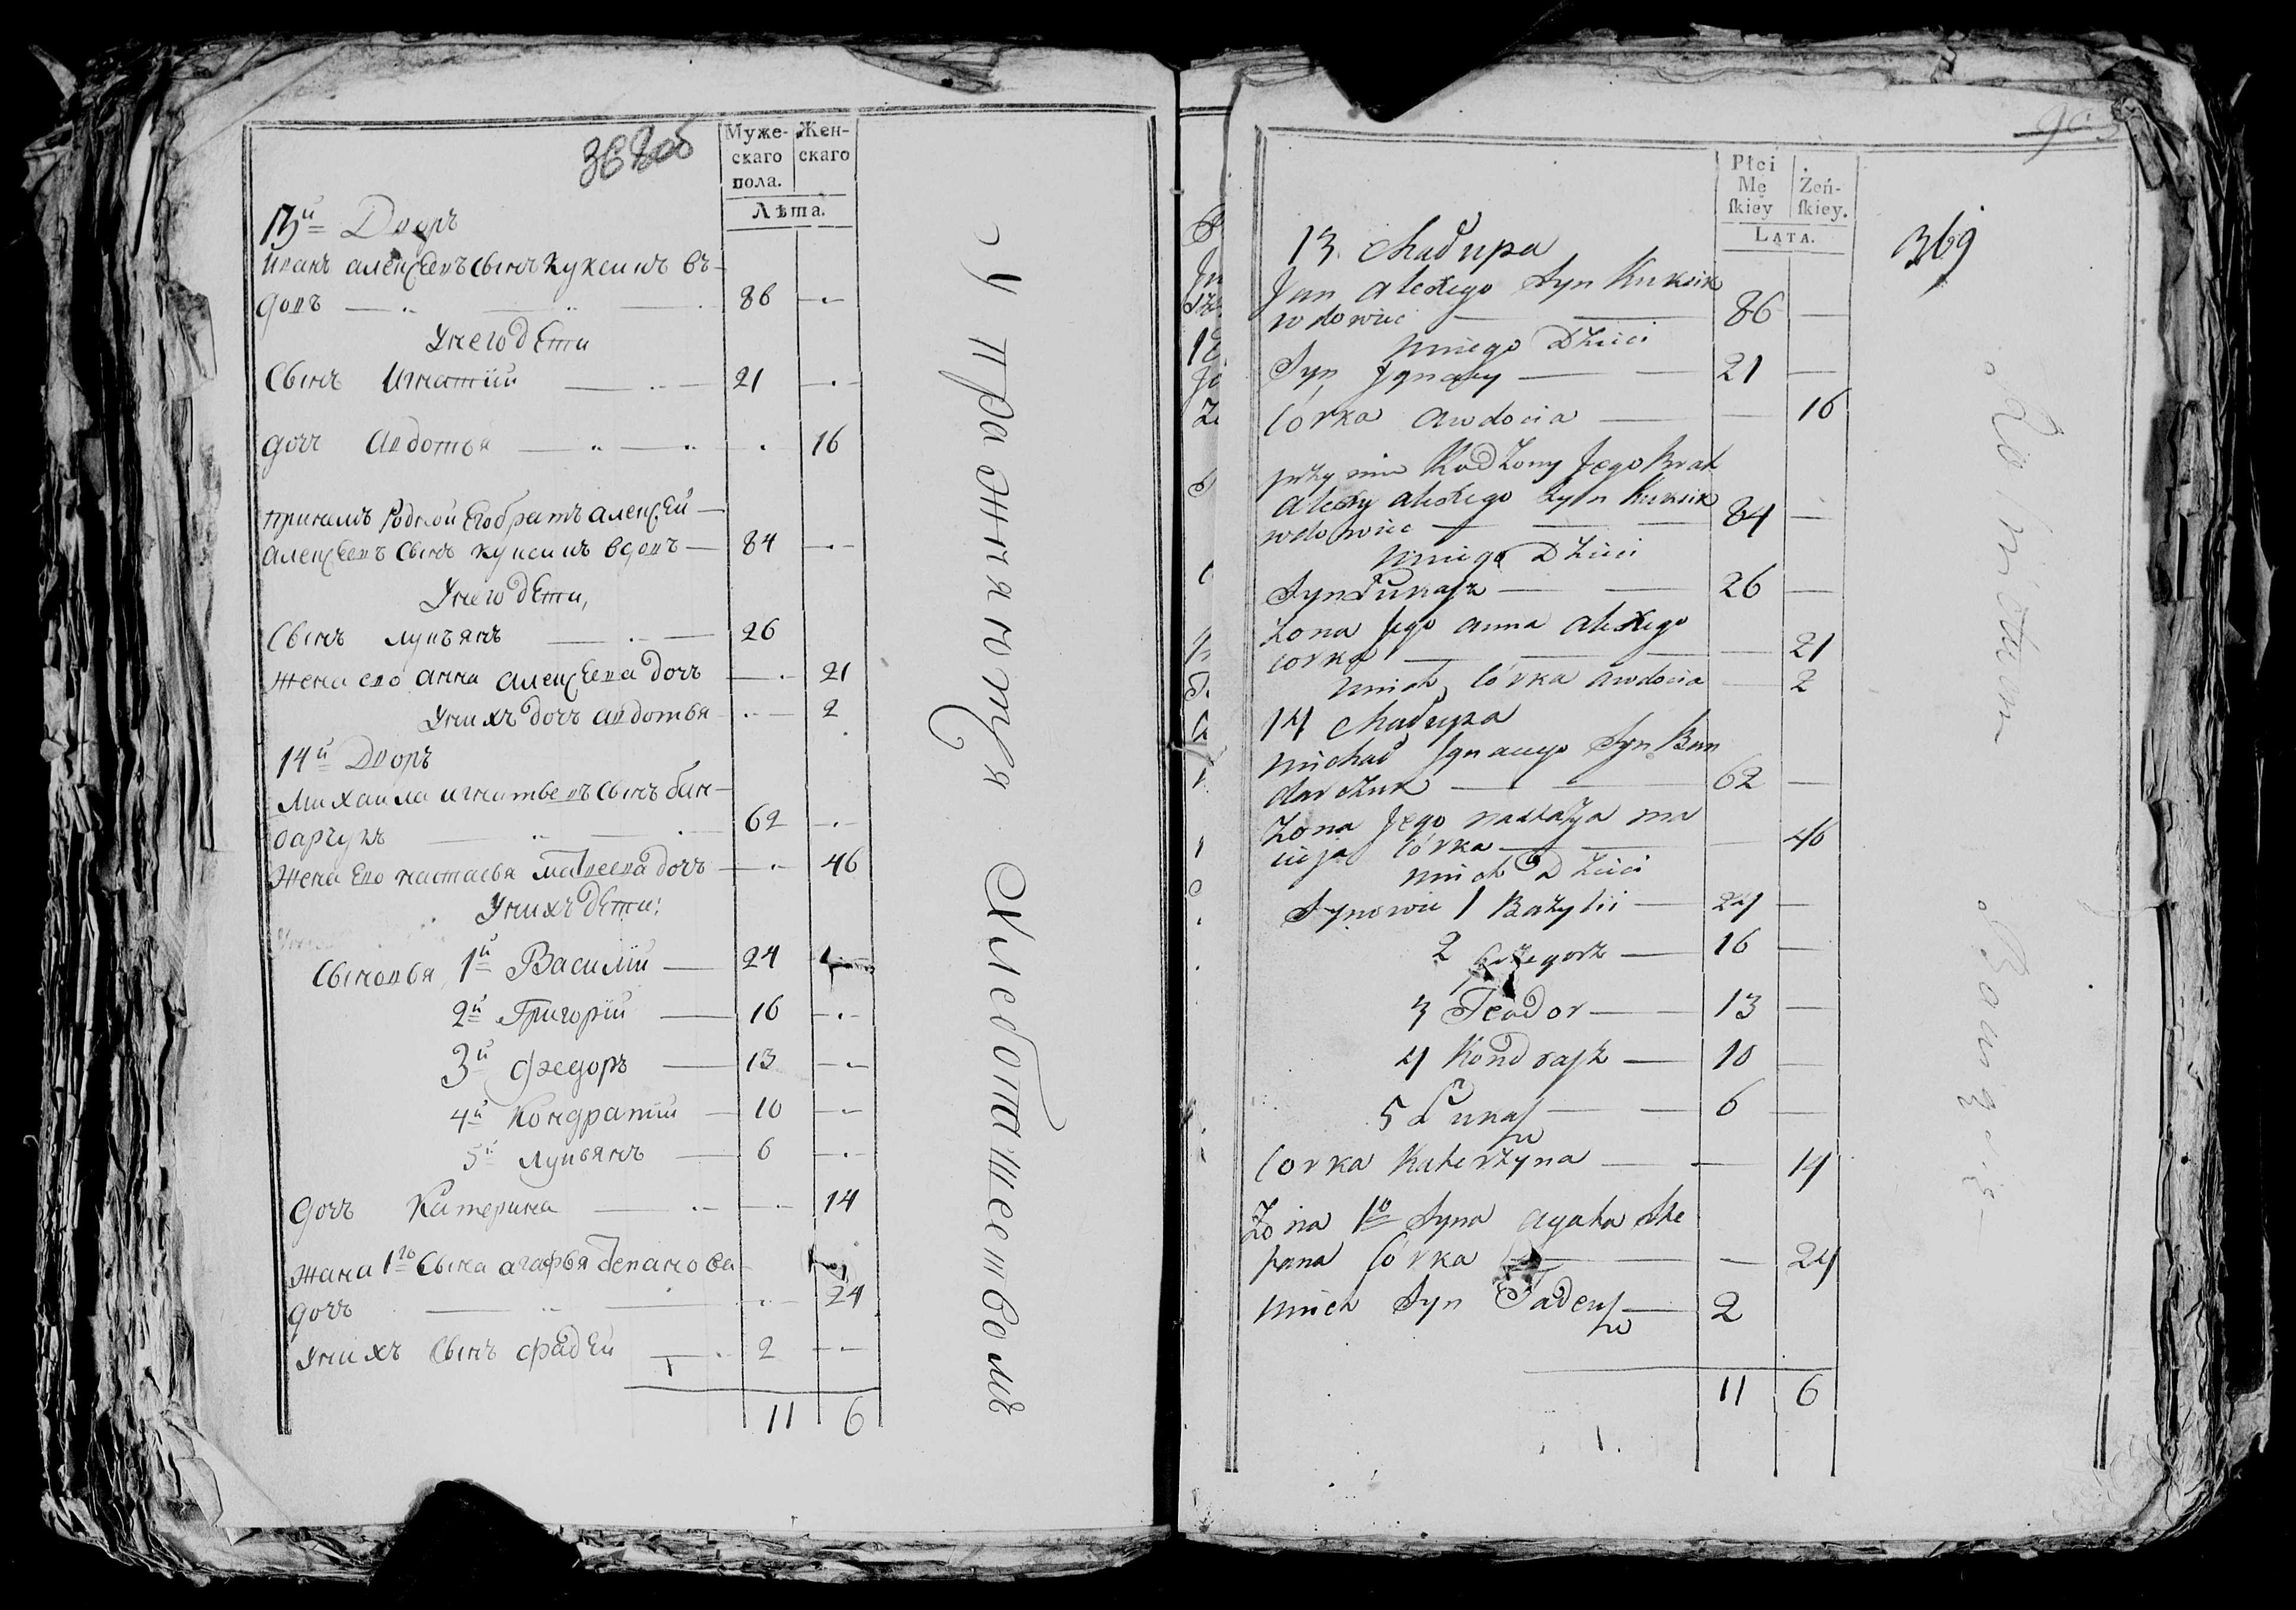 368об
Муже- Жен-
скаго скаго
пола.
Лѣта.
13й Дворъ
Иванъ алексѣевъ сынъ куксикъ въ-
довъ 86
Унего дѣти
Сынъ Игнатий 21
дочь Авдотья 16
принемъ родной Его братъ алексѣй
алексѣевъ сынъ куксикъ вдовъ 84
Унего дѣти,
Сынъ лукъянъ 26
жена его анна алексѣева дочь 21
Унихъ дочь авдотья 2
14й Дворъ
Михаила игнатьевъ сынъ бан-
дарчукъ 62
Жена Его настасья матвеева дочь 46
Унихъ дѣти:
Сыновья 1й Василий 24
2й Григорій 16
3й Федоръ 13
4й Кондратий 10
5й Лукьянъ 6
дочь Катерина 14
жана 1го сына агафья степанова
дочь 24
Унихъ сынъ фадѣй 2
11 6
упражняютца хлебопашествомъ
Płci
Mę Żeń-
ſkiey ſkiey.
LATA.
369
13 Chałupa
Jan alexego Syn Kuksik
wdowiec 86
uniego Dzieci
Syn Jgnacy 21
Córka awdocia 16
przy nim Rodzony Jego Brat
alexy alexego Syn Kuksik
wdowiec 84
uniego Dzieci
Syn Łukasz 26
Zona Jego anna alexego
corka 21
unich córka awdocia 2
14 Chałupa
michał Jgnacego Syn Ban
darczuk 62
Zona Jego nastazya ma
cieja córka 46
unich Dzieci
Synowie 1 Bazylii 24
2 Grzegorz 16
3 Teodor 13
4 Kondrasz 10
5 Łukasz 6
Corka Katerzyna 14
Zona 1o Syna agata Ste
pana córka 24
unich Syn Tadeusz 2
11 6